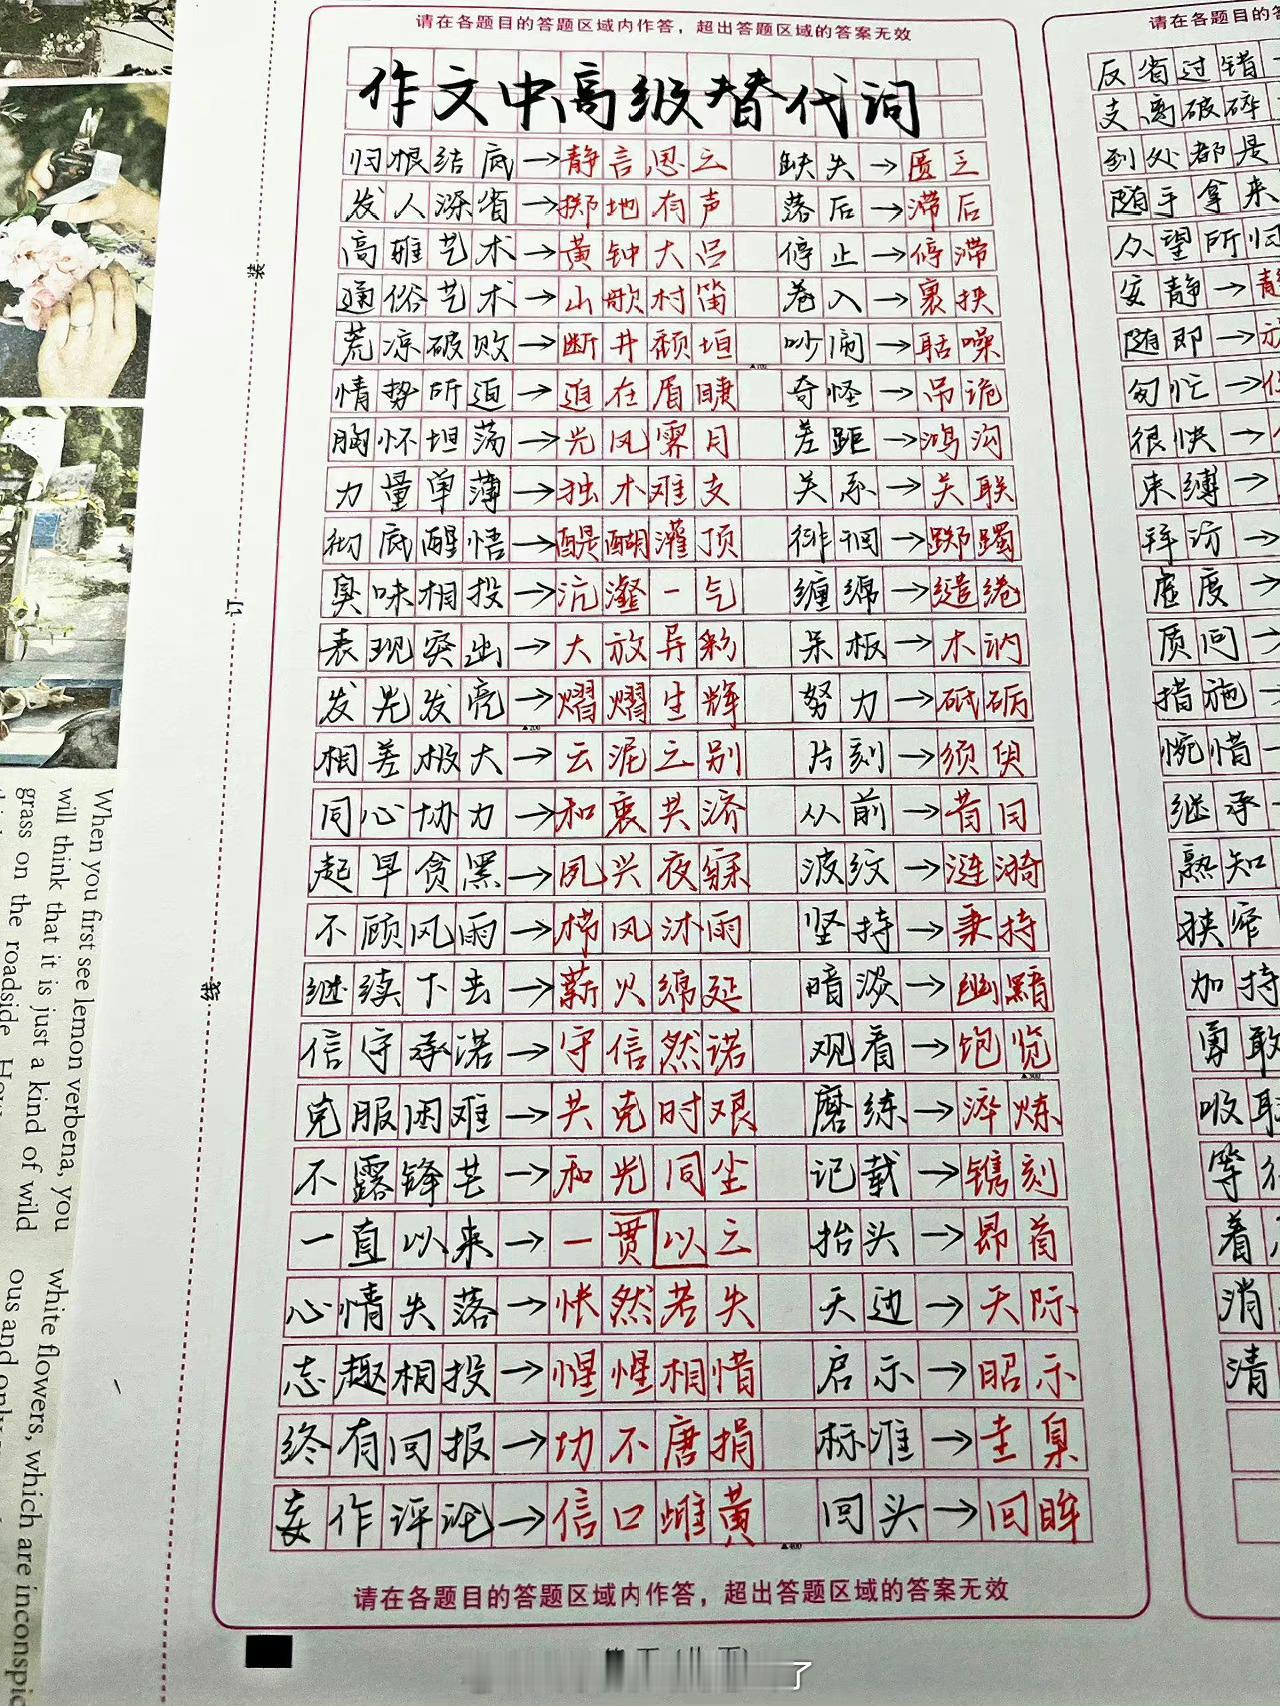 请在各题目的答题区域内作答，超出答题区域的答案无效
作文中高级替代词
归根结底→静言思之 缺失→匮乏
发人深省→掷地有声 落后→滞后
高雅艺术→黄钟大吕 停止→停滞
通俗艺术→山歌村笛 卷入→裹挟
荒凉破败→断井颓垣 吵闹→聒噪
情势所迫→迫在眉睫 奇怪→吊诡
胸怀坦荡→光风霁月 差距→鸿沟
力量单薄→独木难支 关系→关联
彻底醒悟→醍醐灌顶 徘徊→踯躅
臭味相投→沆瀣一气 缠绵→缱绻
表现突出→大放异彩 呆板→木讷
发光发亮→熠熠生辉 努力→砥砺
相差极大→云泥之别 片刻→须臾
同心协力→和衷共济 从前→昔日
起早贪黑→夙兴夜寐 波纹→涟漪
不顾风雨→栉风沐雨 坚持→秉持
继续下去→薪火绵延 暗淡→幽黯
信守承诺→守信然诺 观看→饱览
克服困难→共克时艰 磨练→淬炼
不露锋芒→和光同尘 记载→镌刻
一直以来→一贯以之 抬头→昂首
心情失落→怅然若失 天边→天际
志趣相投→惺惺相惜 启示→昭示
终有回报→功不唐捐 标准→圭臬
妄作评论→信口雌黄 回头→回眸
请在各题目的答题区域内作答，超出答题区域的答案无效
装
订
线
请在各题目的答题区域内
反省过错
支离破碎
到处都是
随手拿来
众望所归
安静→
随即→
匆忙→
很快→
束缚→
拜访→
虚度→
质问→
措施→
惋惜→
继承
熟知
狭窄
加持
勇敢
吸
等
着
消
清
When you first see lemon verbena, you
will think that it is just a kind of wild
grass on the roadside
white flowers, which
ous and only
are inconspic